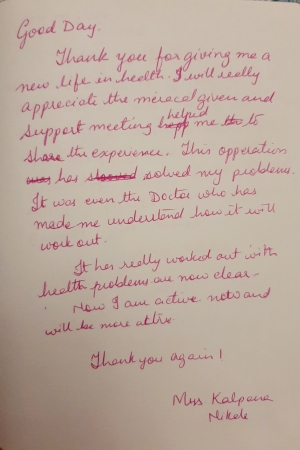 Good Day.
Thank you for giving me a
new life in health. I will really
appreciate the miracal given and
support meeting helped me to
share the experence. This opperation
has solved my problems.
It was even the Doctor who has
made me understand how it will
work out.
It has really worked out with
health problems are now clear -
Now I am active noto and
will be more attive
Thank you again!
Mrs Kalpana